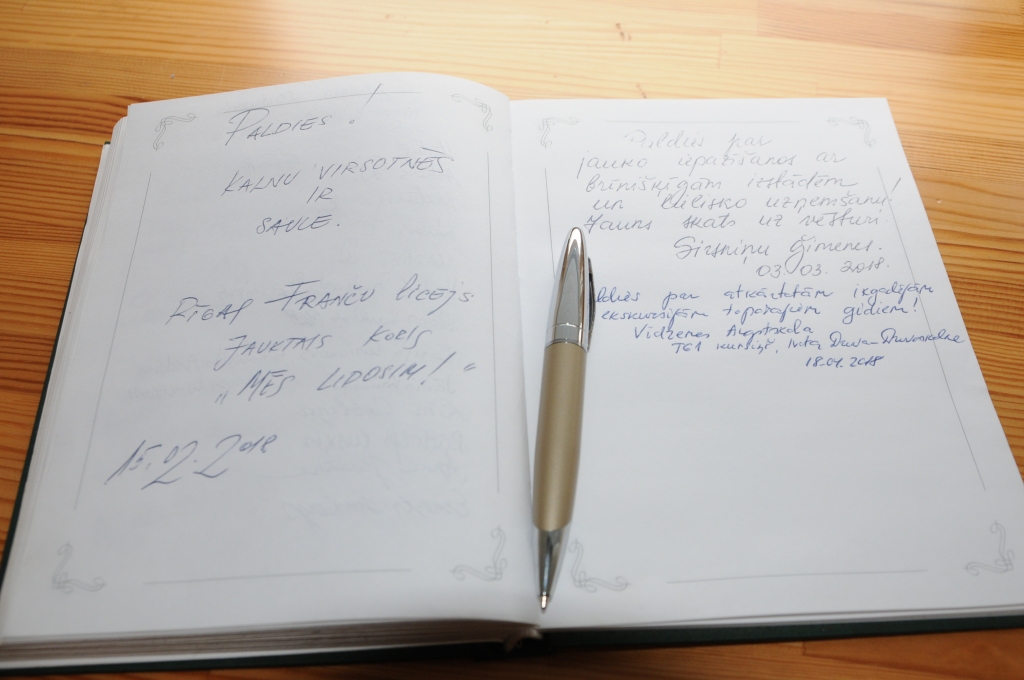 PALDIES!
KALNU VIRSOTNĒS
IR
SAULE.
RĪGAS FRANČU licejs.
JAUKTAIS KORIS
„MĒS LIDOSIM!"
15.02.2018
Paldies par
jauko iepazīšanos ar
brīnišķīgām izstādēm
un lielisko uzņemšanu!
Jauns skats uz vēsturi.
Sirsniņu Ģimenes.
03.03.2018.
par atkārtotām izgadējām
ekskursijām topošajiem gidiem!
Vidzemes Augstskola
TG1 kursiņš,
18.04.2018